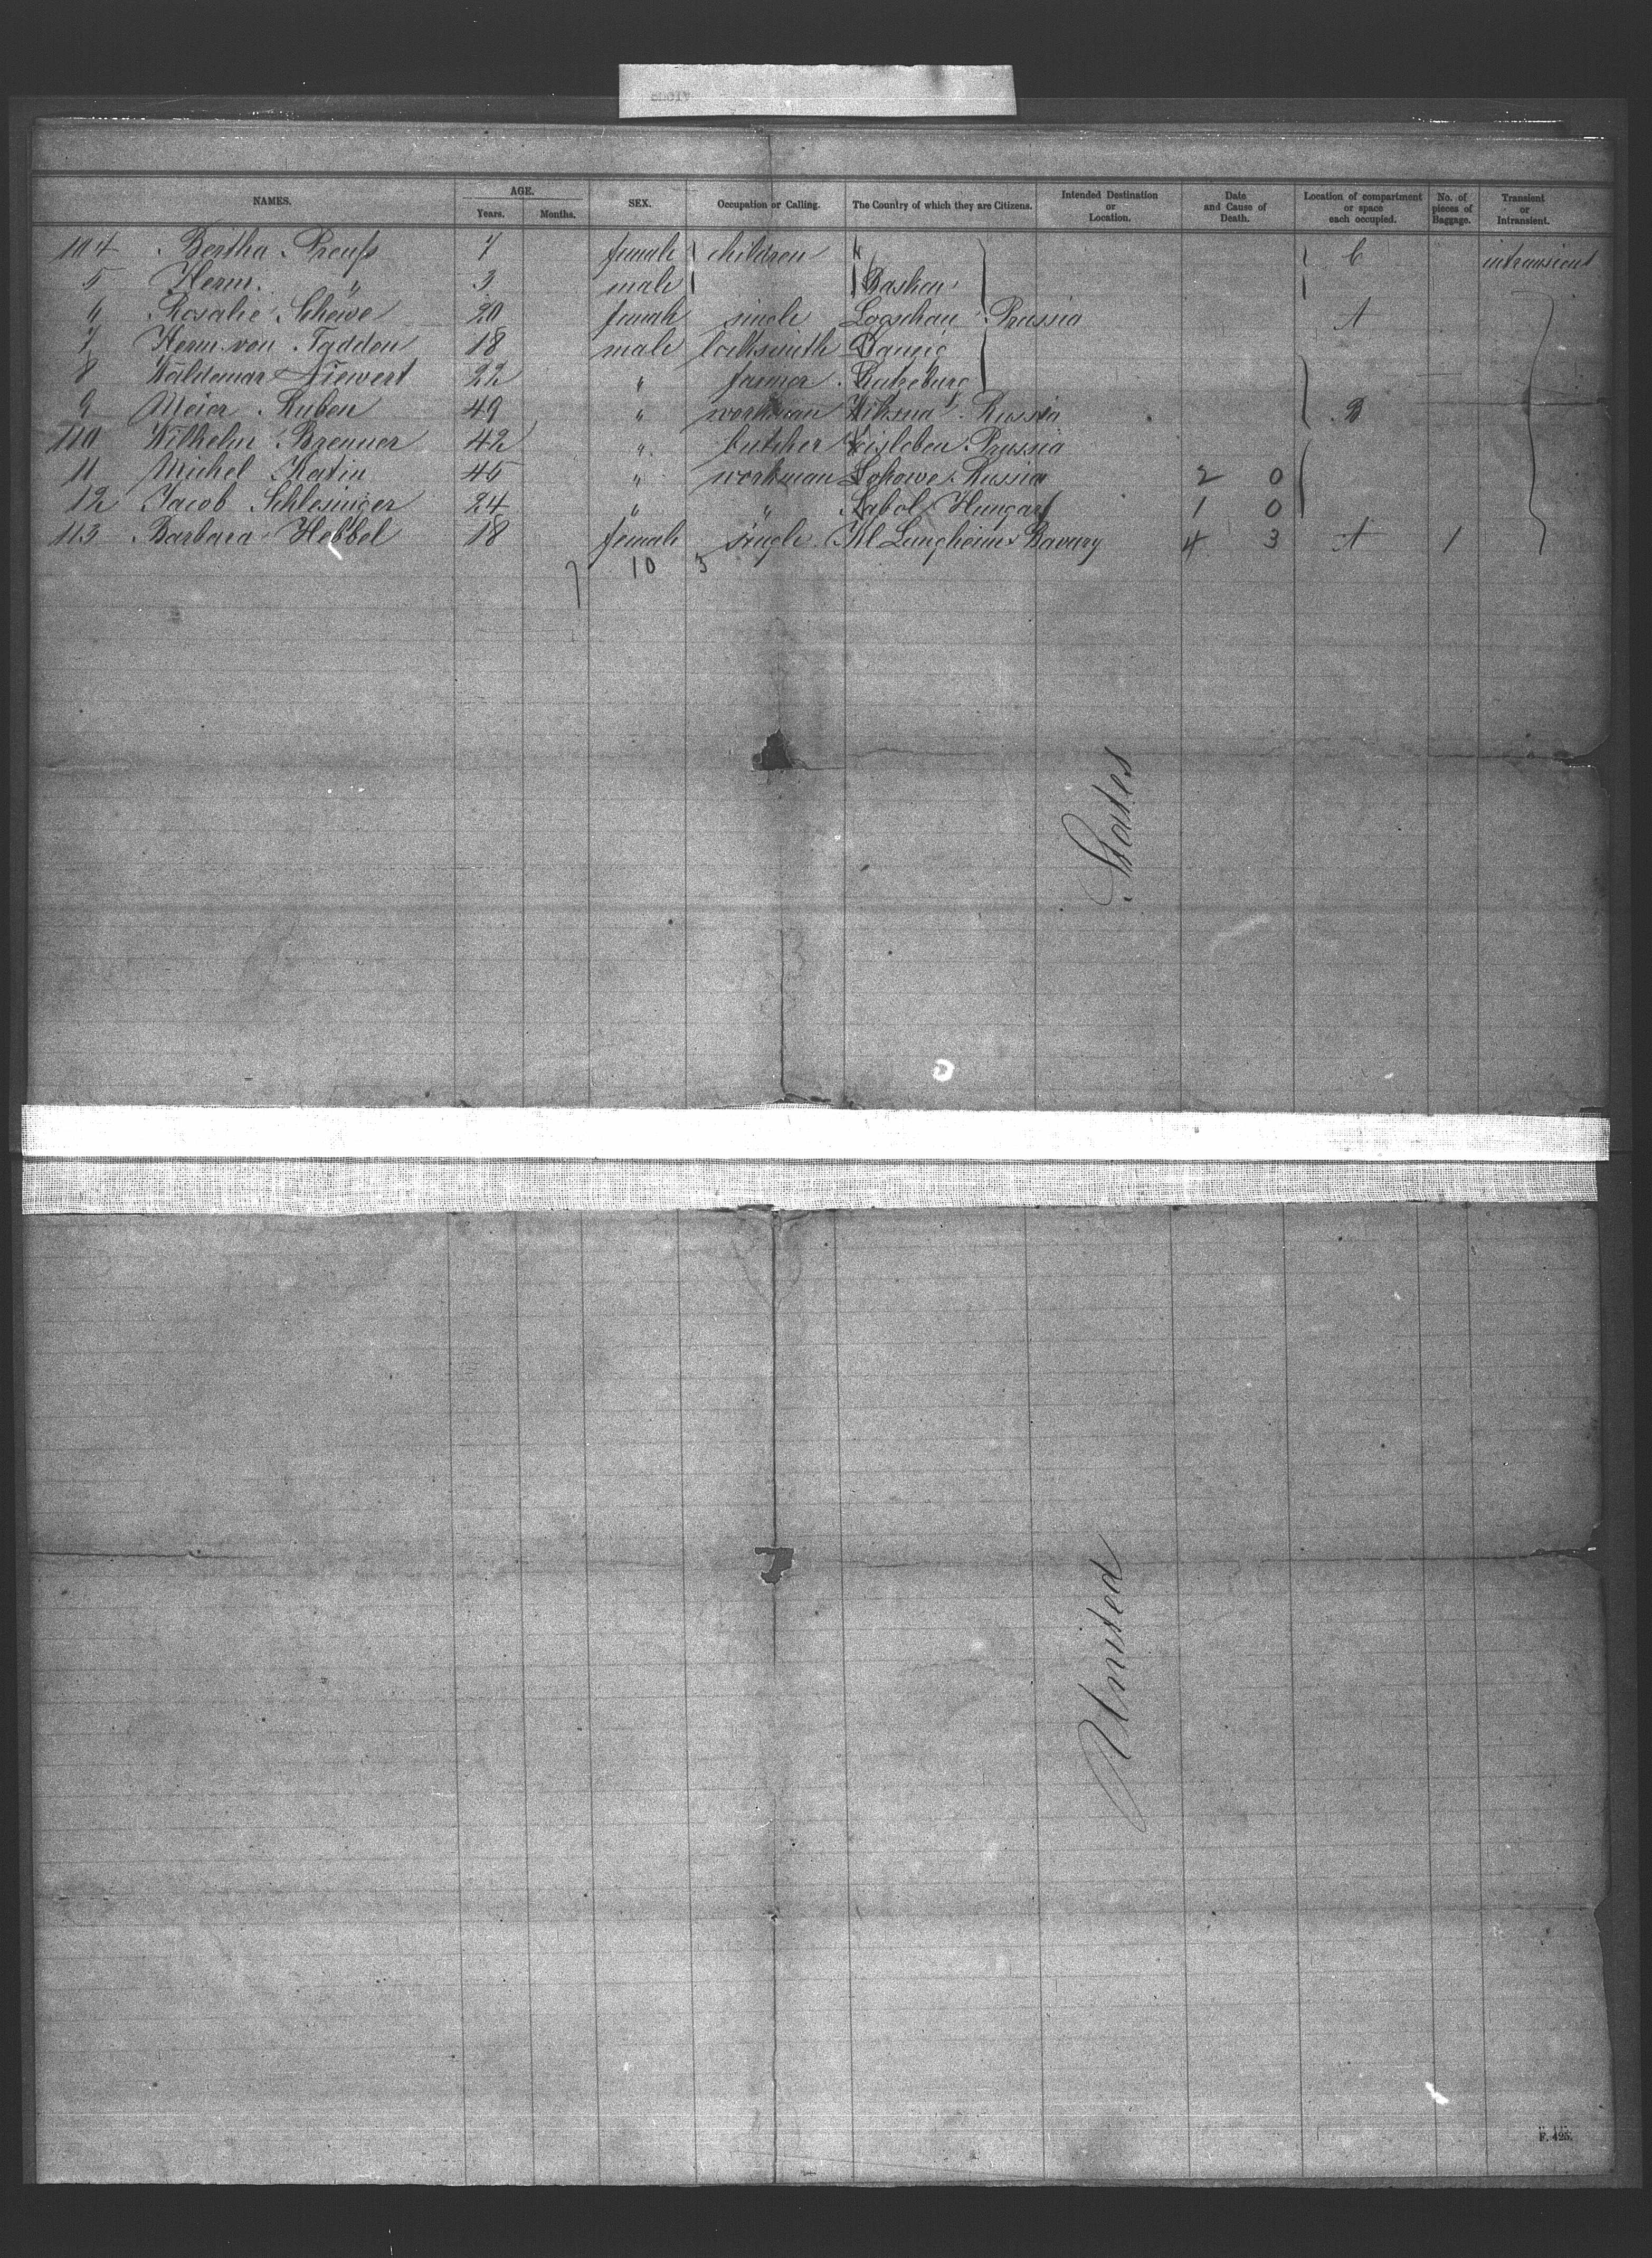 NAMES. AGE. Years. Months. SEX. Occupation or Calling. The Country of which they are Citizens. Intended Destination or Location. Date and Cause of Death. Location of compartment or space each occupied. No. of pieces of Baggage. Transient or Intransient.
104 Bertha Preuß 7 female children C intransient
5 Herm. " 3 male
6 Rosalie Schewe 20 female single Prussia A
7 Herm. von Tadden 18 male locksmith Danzig
8 Waldemar Siewert 22 " farmer
9 Meier Ruben 49 " workman Russia B
110 Wilhelm Brenner 42 " butcher Eisleben Prussia
11 Michel Katin 45 " workman Russia 2 0
12 Jacob Schlesinger 24 " " Hungary 1 0
113 Barbara Hebbel 18 female single Kl Langheim Bavary 4 3 A 1
7 10 3
United States
F. 495.